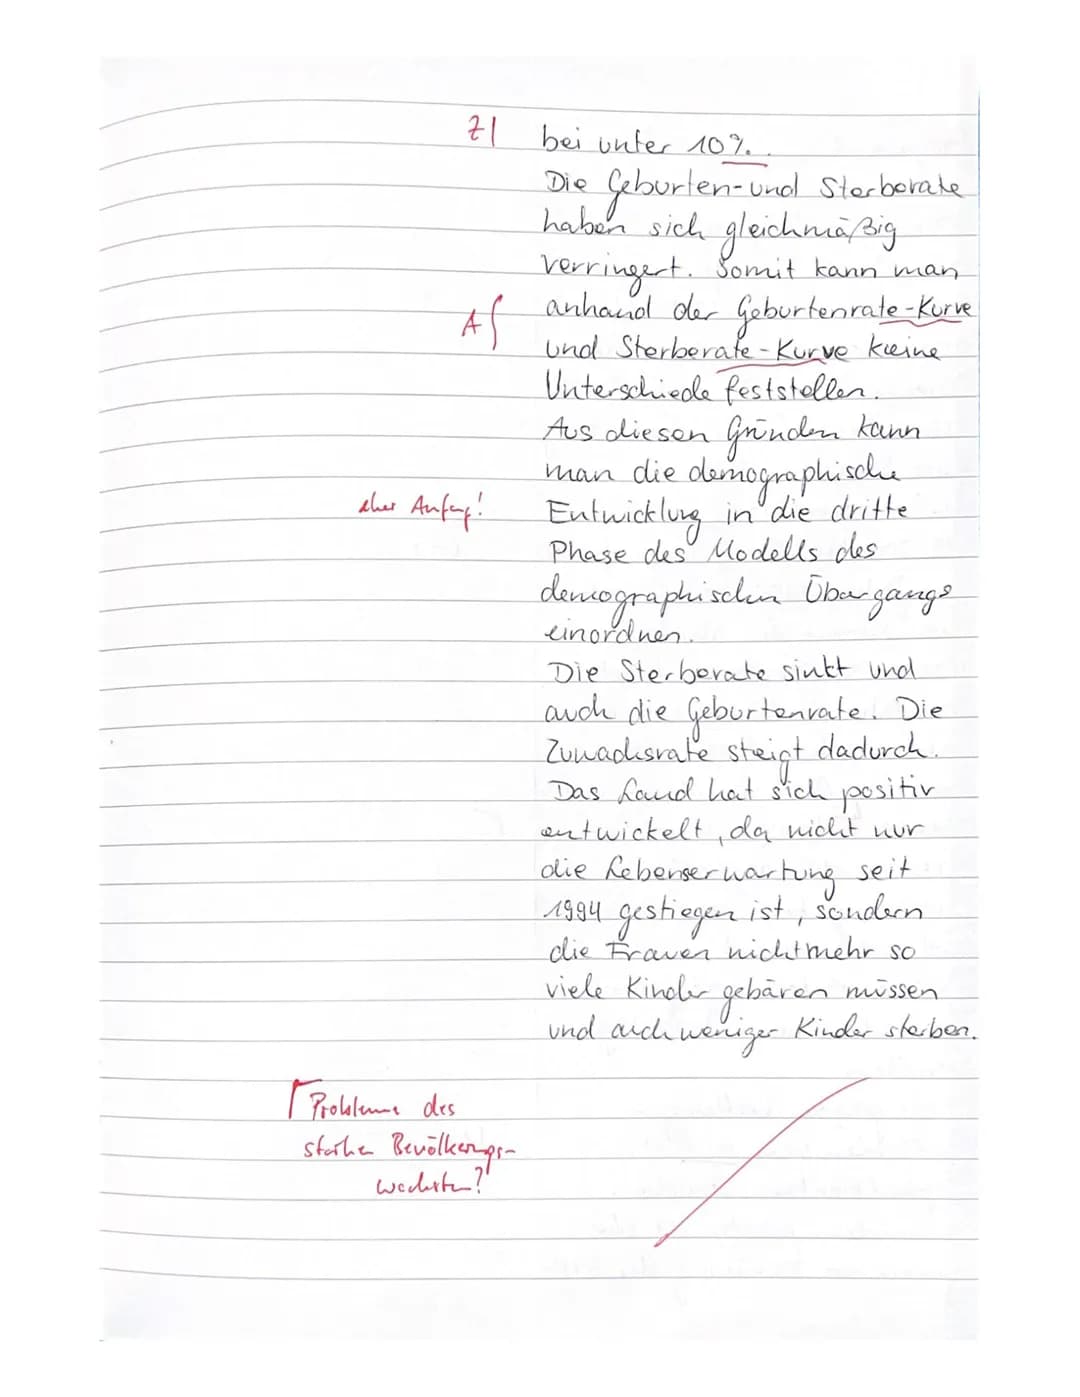 Z| bei unter 10%.
Die Geburten-und Sterberate
haben sich gleichmäßig
verringert. Somit kann man
anhand der Geburtenrate-Kurve
A und Sterberate-Kurve kleine
Unterschiede feststellen.
Aus diesen Gründen kann
man die demographische
eher Anfang! Entwicklung in die dritte
Phase des Modells des
demographischen Übergangs
einordnen.
Die Sterberate sinkt und
auch die Geburtenrate. Die
Zuwachsrate steigt dadurch.
Das Land hat sich positiv
entwickelt, da nicht nur
die Lebenserwartung seit
1994 gestiegen ist, sondern
die Frauen nicht mehr so
viele Kinder gebären müssen
und auch weniger Kinder sterben.
Probleme des
starken Bevölkerungs-
wachstums?